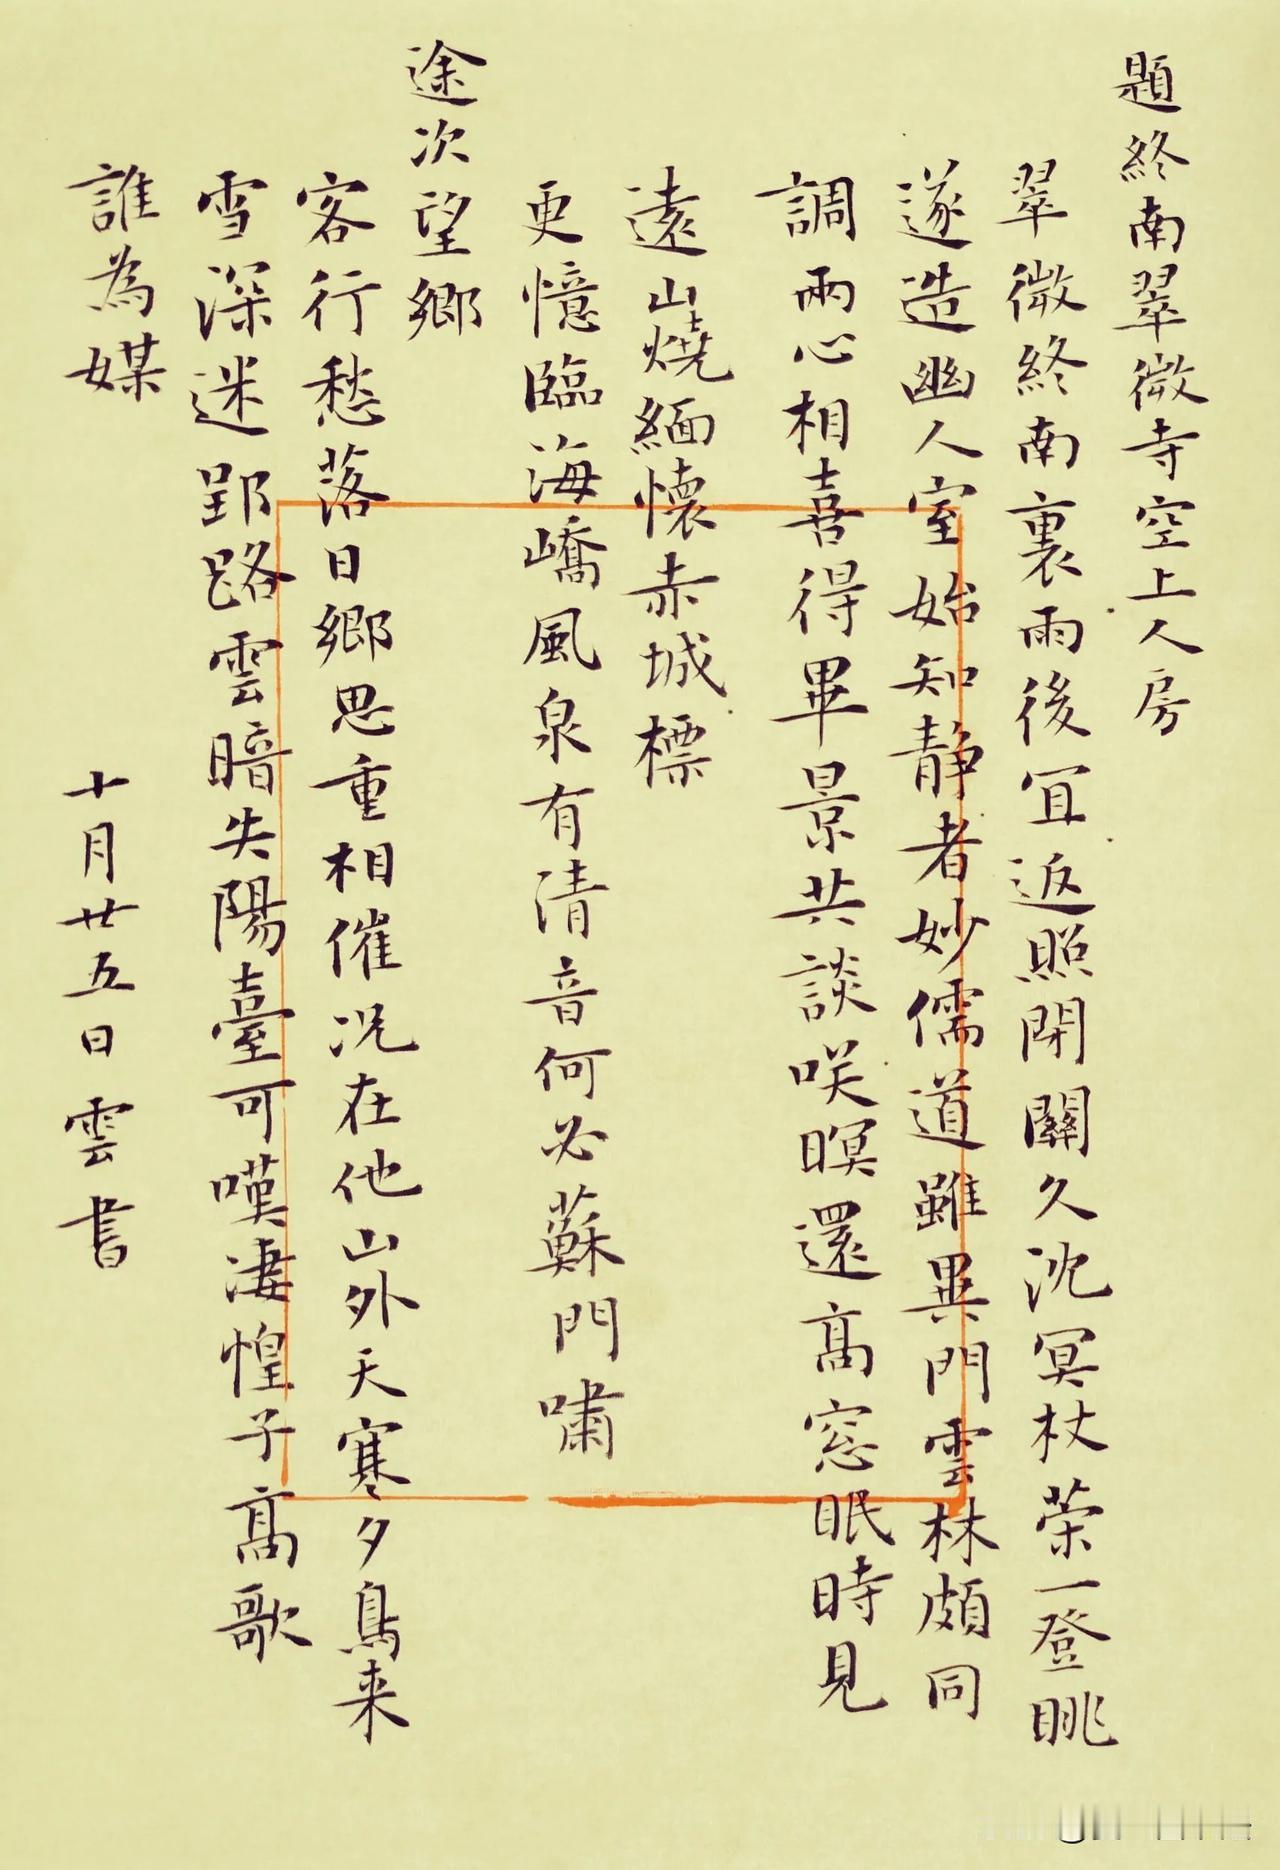 題終南翠微寺空上人房
翠微終南裏雨後宜返照閉關久沈冥杖荣一登眺
遂造幽人室始知静者妙儒道雖異門雲林頗同
調兩心相喜得畢景共談咲暝還高窓眠時見
遠山燒緬懷赤城標
更憶臨海嶠風泉有清音何必蘇門嘯
途次望鄉
客行愁落日鄉思重相催况在他山外天寒夕鳥来
雪深迷郢路雲暗失陽臺可嘆凄惶子高歌
誰為媒
十月廿五日雲書